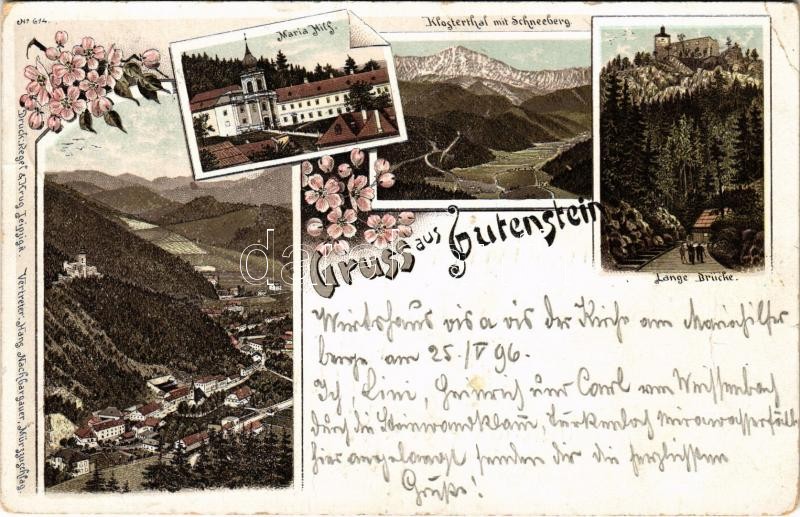 No 614.
Maria Hilf.
Klosterthal mit Schneeberg.
Druck: Regel & Krug, Leipzig R. Vertreter: Hans Nachbargauer, Mürzzuschlag.
Gruss aus Gutenstein
Lange Brücke.
Wirtshaus vis a vis der Kirche am Mariahilfer
berge am 25./V 96.
Ich, Lini, Heinrich und Carl von Weissenbach
durch die Steinwandklamm, Türkenloch Mirawasserfälle
hier angelangt senden dir die herzlichsten
Grüße!